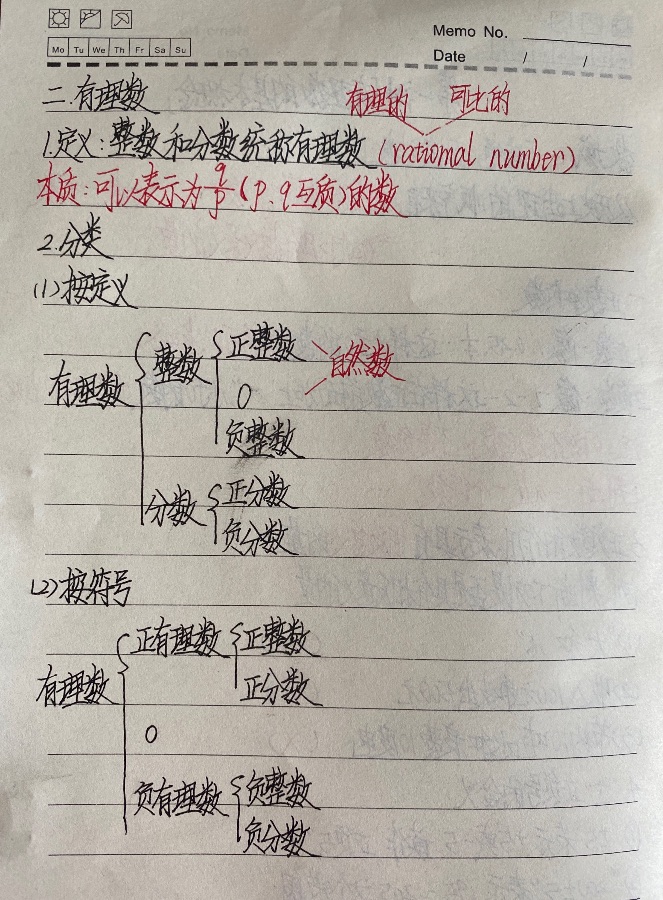 Memo No.
Mo Tu We Th Fr Sa Su
Date / /
二.有理数
有理的 可比的
1.定义:整数和分数统称有理数(rational number)
本质:可以表示为q/p(p.q互质)的数
2.分类
(1)按定义
有理数 整数 正整数
自然数
0
负整数
分数 正分数
负分数
(2)按符号
有理数 正有理数 正整数
正分数
0
负有理数 负整数
负分数